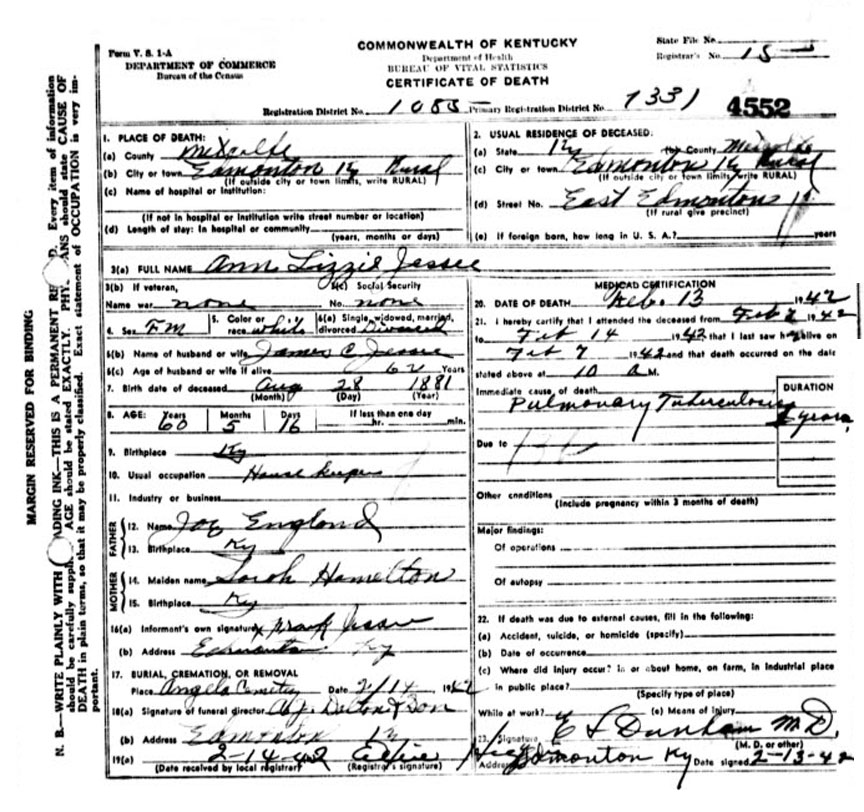 Form V. S. 1-A
DEPARTMENT OF COMMERCE
Bureau of the Census
COMMONWEALTH OF KENTUCKY
Department of Health
BUREAU OF VITAL STATISTICS
CERTIFICATE OF DEATH
State File No.
Registrar's No. 15
Registration District No. 1085 Primary Registration District No. 7331
4552
MARGIN RESERVED FOR BINDING
N. B.—WRITE PLAINLY WITH ADING INK—THIS IS A PERMANENT RE D. Every item of information
should be carefully suppl AGE should be stated EXACTLY. PHY ANS should state CAUSE OF
DEATH in plain terms, so that it may be properly classified. Exact statement of OCCUPATION is very im-
portant.
1. PLACE OF DEATH:
(a) County Metcalfe
(b) City or town Edmonton Ky Rural
(If outside city or town limits, write RURAL)
(c) Name of hospital or institution:
(If not in hospital or institution write street number or location)
(d) Length of stay: In hospital or community
(years, months or days)
2. USUAL RESIDENCE OF DECEASED:
(a) State Ky (b) County Metcalfe
(c) City or town Edmonton Ky Rural
(If outside city or town limits, write RURAL)
(d) Street No. East Edmonton
(If rural give precinct)
(e) If foreign born, how long in U. S. A.? years
3(a) FULL NAME Ann Lizzie Jessee
3(b) If veteran,
Name war none
3(c) Social Security
No. none
4. Sex Fm
5. Color or
race white
6(a) Single, widowed, married,
divorced Divorced
6(b) Name of husband or wife James C Jessee
6(c) Age of husband or wife if alive 62 Years
7. Birth date of deceased Aug 28 1881
(Month) (Day) (Year)
8. AGE: Years Months Days If less than one day
60 5 16 hr. min.
9. Birthplace Ky
10. Usual occupation House keeper
11. Industry or business
FATHER
12. Name Joe England
13. Birthplace Ky
MOTHER
14. Maiden name Sarah Hamelton
15. Birthplace Ky
16(a) Informant's own signature x Jessee
(b) Address Edmonton Ky
17. BURIAL, CREMATION, OR REMOVAL
Place Angela Cemetey Date 2/14 1942
18(a) Signature of funeral director Dalton & Son
(b) Address Edmonton Ky
19(a) 2-14-42 Effie
(Date received by local registrar) (Registrar's signature)
MEDICAL CERTIFICATION
20. DATE OF DEATH Feb. 13 1942
21. I hereby certify that I attended the deceased from Feb 1942
to Feb 14 1942 that I last saw h alive on
Feb 7 1942 and that death occurred on the date
stated above at 10 a M.
Immediate cause of death DURATION
Pulmonary Tuberculosis years
Due to
Other conditions
(Include pregnancy within 3 months of death)
Major findings:
Of operations
Of autopsy
22. If death was due to external causes, fill in the following:
(a) Accident, suicide, or homicide (specify)
(b) Date of occurrence
(c) Where did injury occur? in or about home, on farm, in industrial place
in public place?
(Specify type of place)
While at work? (e) Means of Injury
23. Signature E S Dunham M.D.
(M. D. or other)
Address Edmonton Ky Date signed 2-13-42